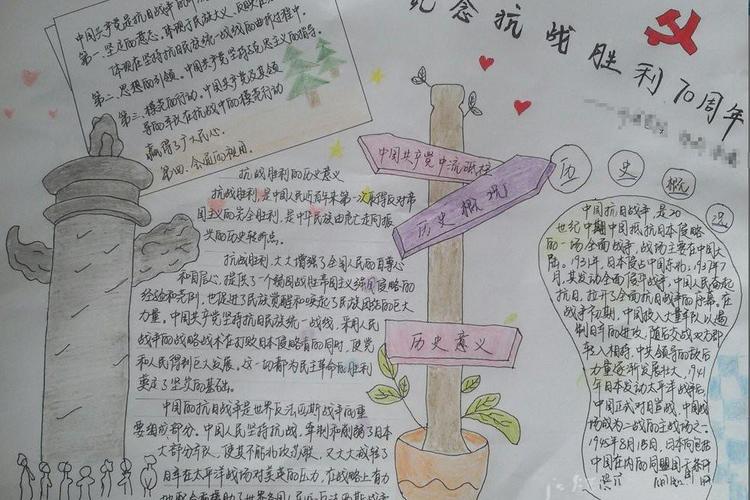 纪念抗战胜利70周年
中国共产党是抗日战争的
第一.坚定的意志.
体现在坚持抗日民族统一战线的曲折过程中.
第二.思想的引领.中国共产党坚持
第三.模范的行动.中国共产党及其领
导的军队在抗战中的模范行动
赢得了广大民心.
第四.
抗战胜利的历史意义
抗战胜利,是中国人民近百年来第一次取得反对帝
国主义的完全胜利,是中华民族由危亡走向振
兴的历史转折点。
抗战胜利,大大增强了全国人民的自尊心
和自信心,提供了一个弱国战胜帝国主义强国侵略的
经验和先例,也促进了民族觉醒和唤起了民族团结的巨大
力量。中国共产党坚持抗日民族统一战线,采用人民
战争的战略战术在打败日本侵略者的同时,使党
和人民得到巨大发展。这一切都为民主革命的胜利
奠定了坚实的基础。
中国的抗日战争是世界反法西斯战争的重
要组成部分。中国人民坚持抗战,牵制和削弱了日本
大部分军队,使其不能北攻苏联,又大大减轻了
日军在太平洋战场对美英的压力,在战略上有力
中国共产党中流砥柱
历史概况
历史意义
历史概况
中国抗日战争,是20
世纪中期中国抵抗日本侵略
的一场全面战争,战场主要在中国大
陆。1931年,日本侵占中国东北,1937年7
月,其发动全面侵华战争,中国人民奋起
抗日,拉开了全面抗日战争的序幕。在
战争初期,中国投入大量军队以遏
制日军的进攻,随后交战双方都
转入相持,中共领导的敌后
力量逐渐发展壮大,1941
年日本发动太平洋战争后,
中国正式对日宣战,中国战
场成为二战的主战场之一.
1945年8月15日,日本向包括
中国在内的同盟国无条件